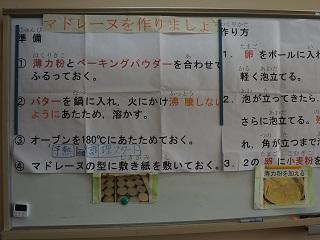 マドレーヌを作りましょう
準備
① 薄力粉とベーキングパウダーを合わせて
ふるっておく。
② バターを鍋に入れ、火にかけ沸騰しない
ようにあたため、溶かす。
③ オーブンを180℃にあたためておく。
予熱
④ マドレーヌの型に敷き紙を敷いておく。
作り方
1. 卵をボールに入れ
軽く泡立てる。
2. 泡が立ってきたら、
さらに泡立てる。
れ、角が立つまで
3. 2の卵に小麦粉を
薄力粉を加える